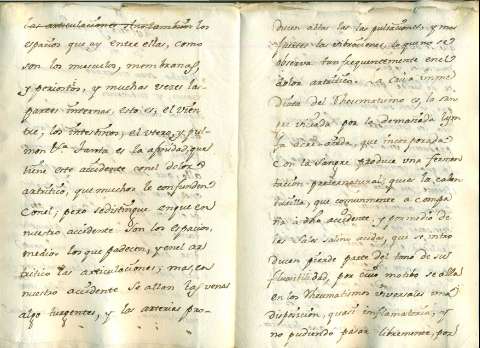 las articulaciones sino tambien los
espacios que ay entre ellas, como
son los musculos, membranas,
y periostos, y muchas veces las
partes internas, esto es, el vien
tre, los intestinos, el utero, y pul-
mon &a. Tanta es la afinidad que
tiene este accidente con el dolor
artritico, que muchos le confunden
con el; pero se distingue en que en
nuestro accidente son los espacios
medios los que padecen, y en el ar
tritico las articulaciones; mas, en
nuestro accidente se allan las venas
algo turgentes, y las arterias pro-
ducen altas las pulsaciones, y mas
fuertes las vibraciones, lo que no se
observa tan frequentemente en el
dolor artritico. La causa inme
diata del Rheumatismo es, la san
gre viciada por la demasiada lym
fa acre acida, que incorporada
con la sangre produce una fermen
tacion preternatural, que es la calen
turilla, que comunmente acompa
ña a dho accidente, y por medio de
las sales salino acidas, que se intro
ducen pierde parte del tono de su
fluxilidad, por cuio motibo se alla
en los Rheumatismos universales una
disposicion, quasi inflamatoria, y
no pudiendo pasar libremente, por